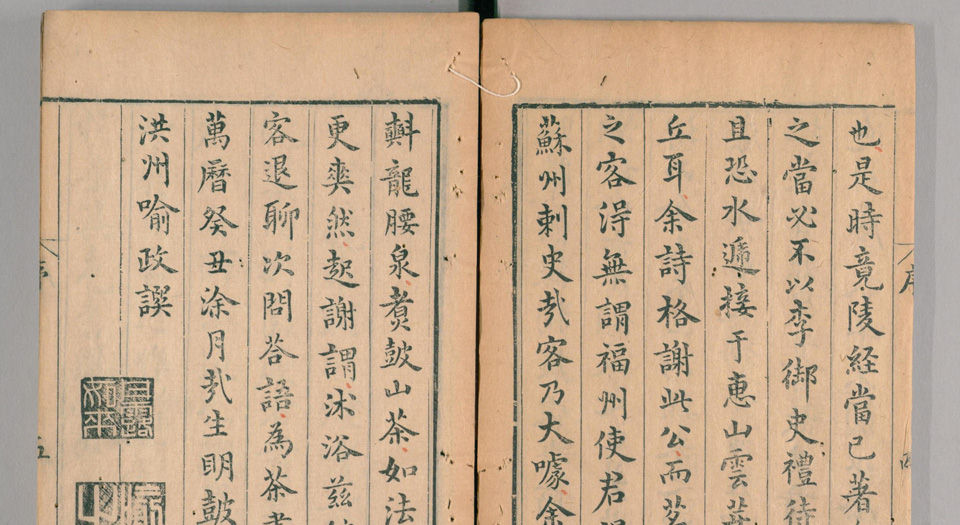 也是時竟陵経當已著
之當必不以李御史禮待
且恐水遞接干惠山雲
丘耳余詩格謝此公而茗
之客得無謂福州使君
蘇州刺史㢤客乃大噱余
龍腰泉煑皷山茶如法
更爽然起謝謂沐浴兹
客退聊次問荅語為茶
萬曆癸丑涂月㢤生明皷
洪州喻政譔
序
五
序